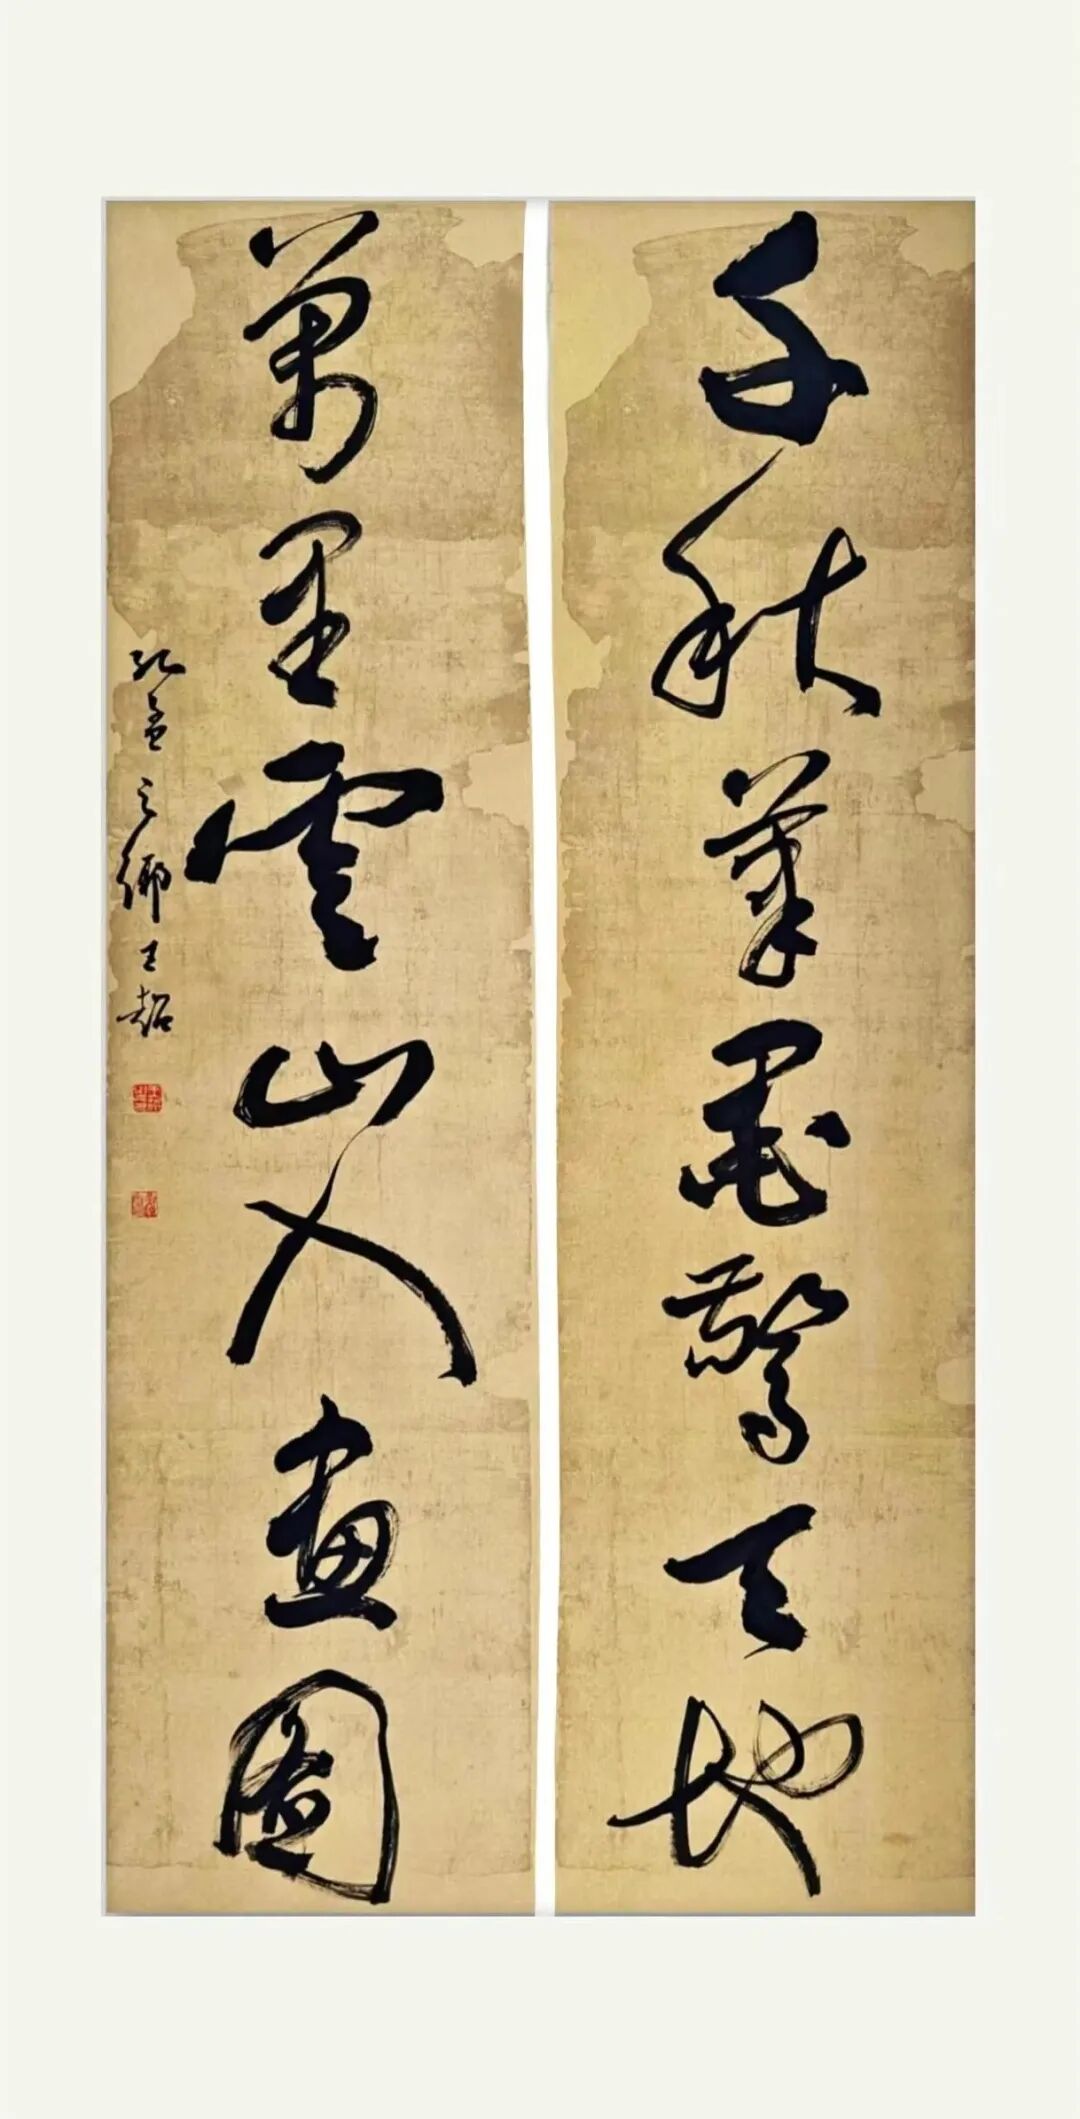 千秋筆墨驚天地
萬里雲山入畫圖
孔孟之鄉王超